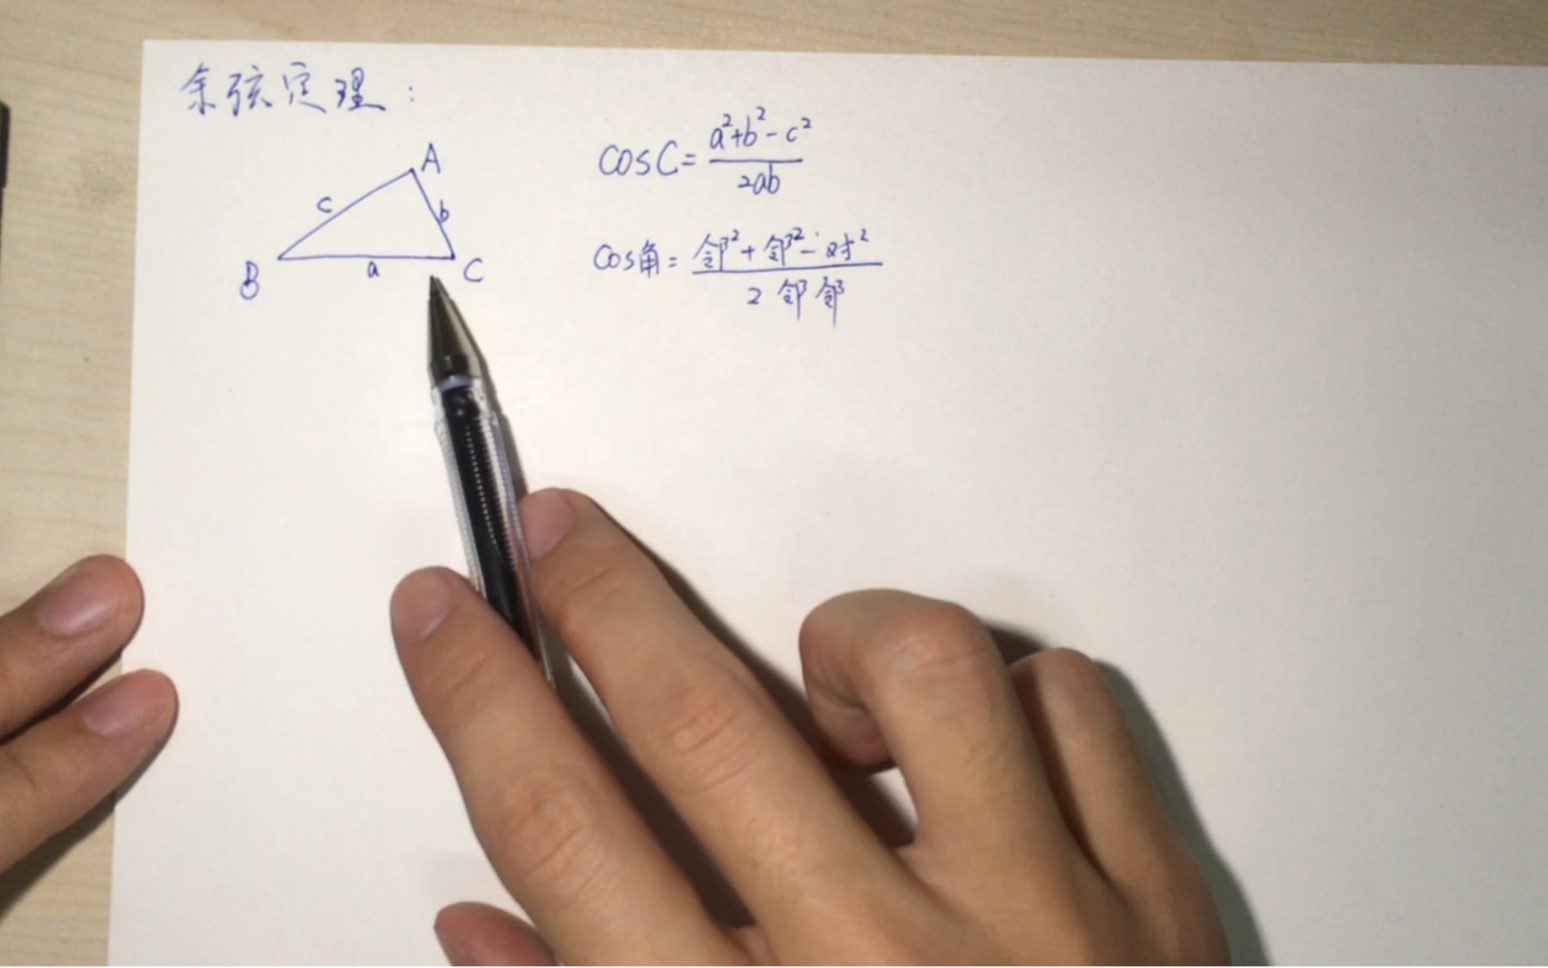 余弦定理：
A
c
b
B
a
C
cosC = (a²+b²-c²)/(2ab)
cos角 = (邻²+邻²-对²)/(2邻邻)